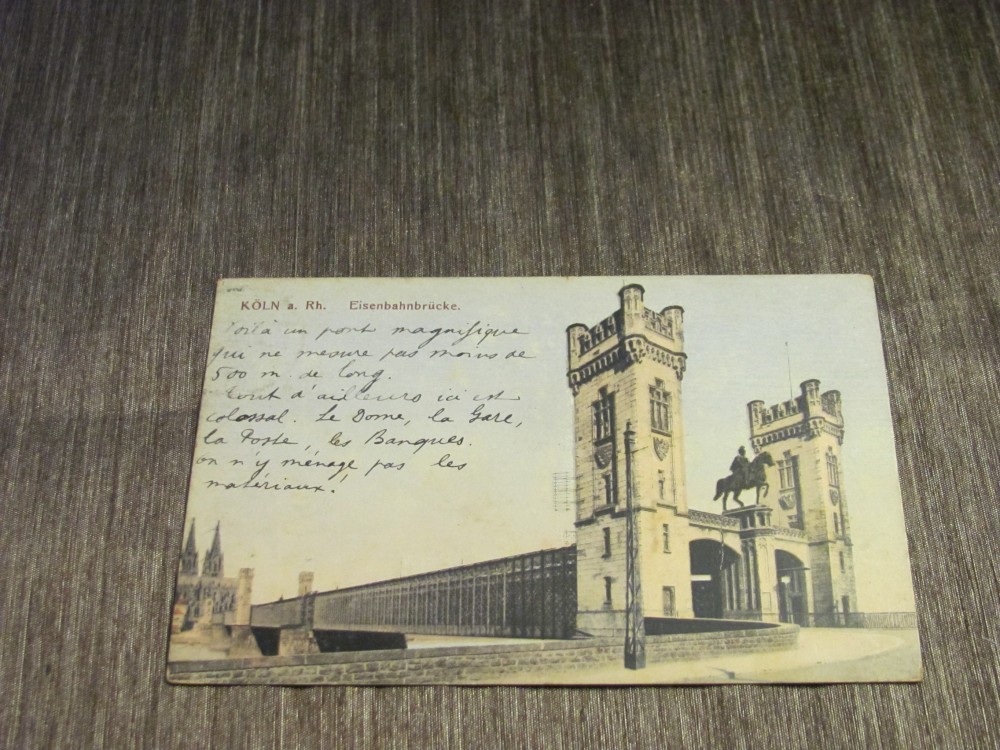 KÖLN a. Rh. Eisenbahnbrücke.
Voilà un pont magnifique
qui ne mesure pas moins de
500 m. de long.
Tout d'ailleurs ici est
colossal. Le Dome, la Gare,
la Poste, les Banques.
on n'y ménage pas les
matériaux.